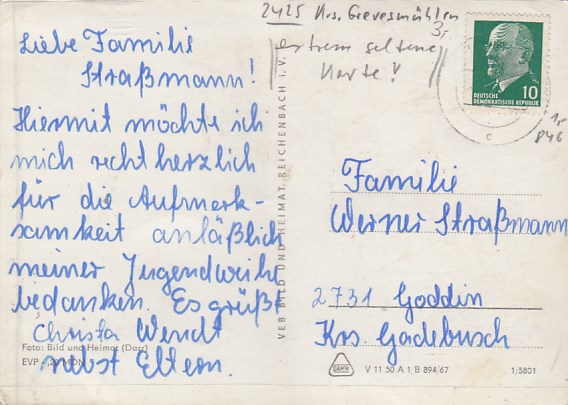 Liebe Familie
Straßmann!
Hiermit möchte ich
mich recht herzlich
für die Aufmerk-
samkeit anläßlich
meiner Jugendweihe
bedanken. Es grüßt
Christa Wendt
nebst Eltern.
Foto: Bild und Heimat (Darr)
EVP
VEB BILD UND HEIMAT REICHENBACH i. V.
2425 Krs. Grevesmühlen
extrem seltene
Karte!
3,-
DEUTSCHE
DEMOKRATISCHE REPUBLIK
10
c
846
Familie
Werner Straßmann
2731 Goddin
Krs. Gadebusch
V 11 50 A 1 B 894/67
1/5801